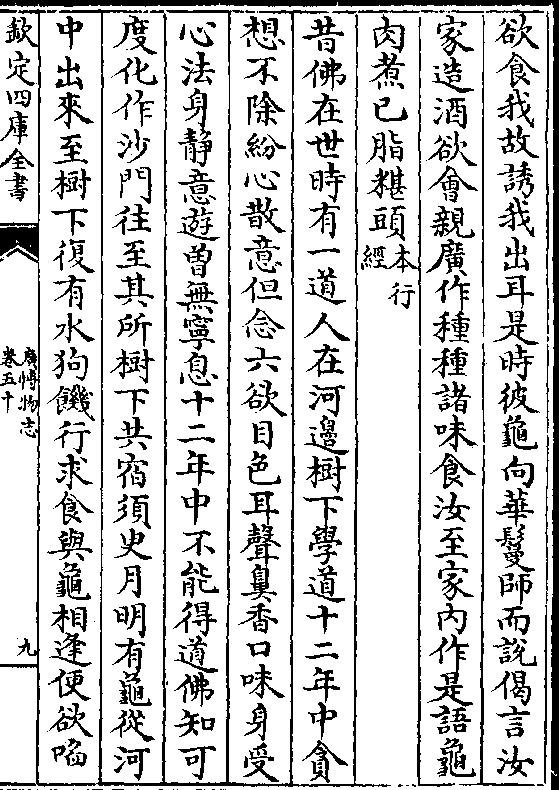 欲食我故誘我出耳是時彼龜向華鬘師而說偈言汝
家造酒欲會親廣作種種諸味食汝至家內作是語龜
肉煮已脂糂頭本行經
昔佛在世時有一道人在河邊樹下學道十二年中貪
想不除紛心散意但念六欲目色耳聲鼻香口味身受
心法身靜意遊曽無寧息十二年中不能得道佛知可
度化作沙門往至其所樹下共宿須臾月明有龜從河
中出來至樹下復有水狗饑行求食與龜相逢便欲啗
欽定四庫全書
廣博物志
卷五十
九